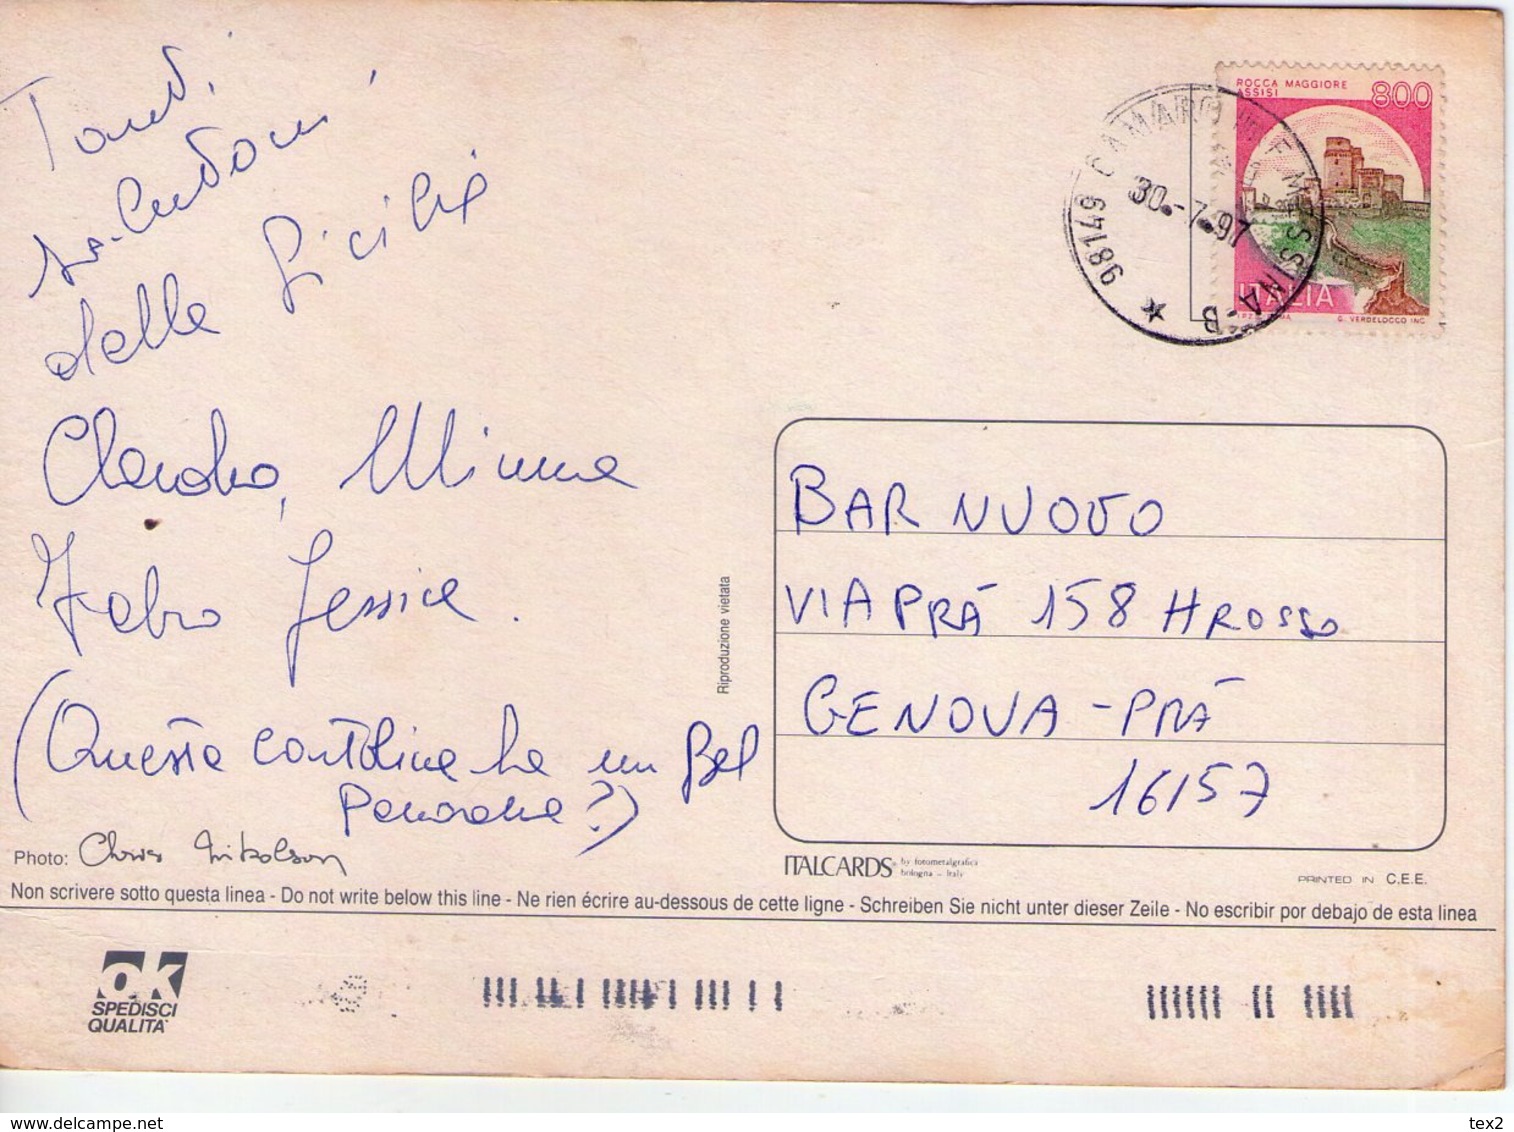 Tanti
saluti
dalla Sicilia
Claudia, Mimma
Fabio Jessica.
(Questa cartolina ha un Bel
Panorama?)
Photo: Chris Nikolson
Non scrivere sotto questa linea - Do not write below this line - Ne rien écrire au-dessous de cette ligne - Schreiben Sie nicht unter dieser Zeile - No escribir por debajo de esta linea
ok
SPEDISCI
QUALITA'
Riproduzione vietata
ROCCA MAGGIORE
ASSISI
800
ITALIA
G. VERDELOCCO INC.
98149 CAMARO MESSINA - B
30.-7.97
BAR NUOVO
VIA PRÁ 158 H ROSSO
GENOVA - PRÁ
16157
ITALCARDS by fotometalgrafica
bologna - Italy
PRINTED IN C.E.E.
www.delcampe.net
tex2